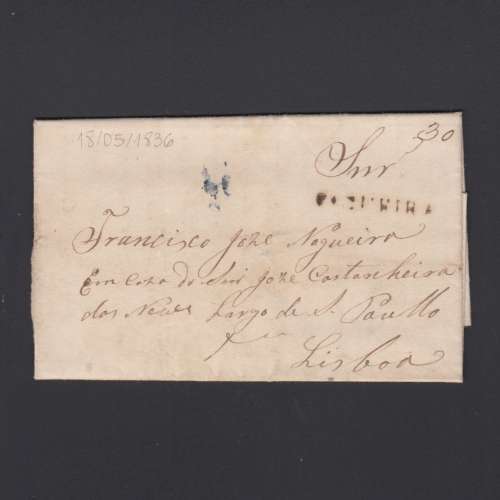 18/05/1836
30
Snr
FIGUEIRA
Francisco Joze Nogueira
Em Caza do Snr Joze Castanheira
das Neves Largo de S. Paullo
Lisboa